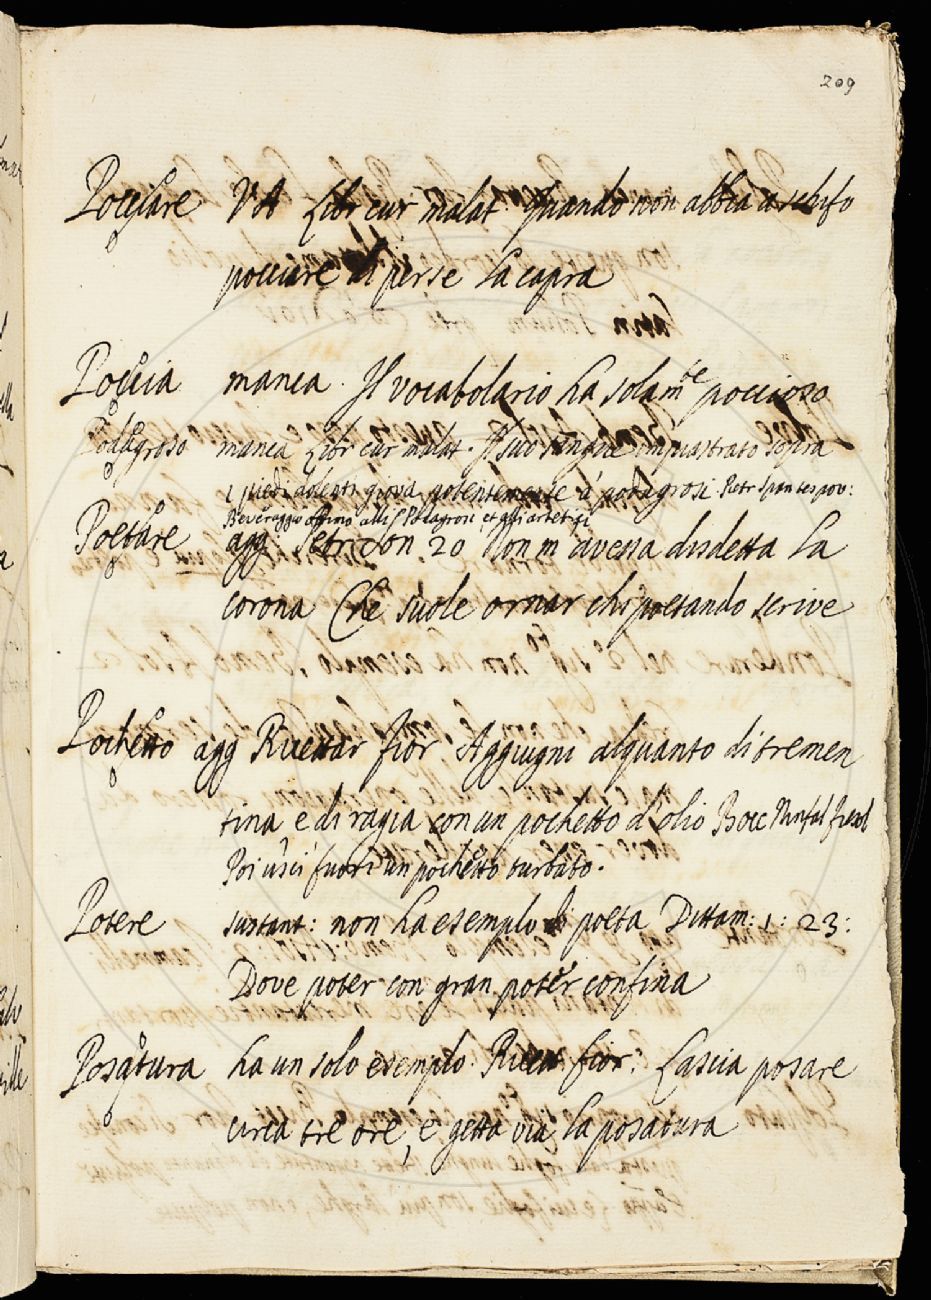 209
Pocciare VA Libr cur malat. Quando non abbia a schifo
pocciare di per se la capra
Poccia manca. Il vocabolario ha solam.te poccioso
Podagroso manca Libr cur malat. Il suo sangue impiastrato sopra
i piedi dolenti giova potentemente a' podagrosi Pietr Span tes pov:
Beveraggio ottimo alli Potagrosi, et agli artetici
Poetare agg: Petr Son 20 Non m'avessa disdetta la
corona Che suole ornar chi poetando scrive
Pochetto agg Ricettar fior Aggiugni alquanto di tremen
tina e di ragia con un pochetto d'olio Bocc Ninfal fiesol
Poi uscì fuori un pochetto turbato.
Potere sustant: non ha esemplo di poeta Dittam: 1: 23:
Dove poter con gran poter confina
Posatura ha un solo esemplo: Ricett fior: Lascia posare
circa tre ore, e getta via la posatura